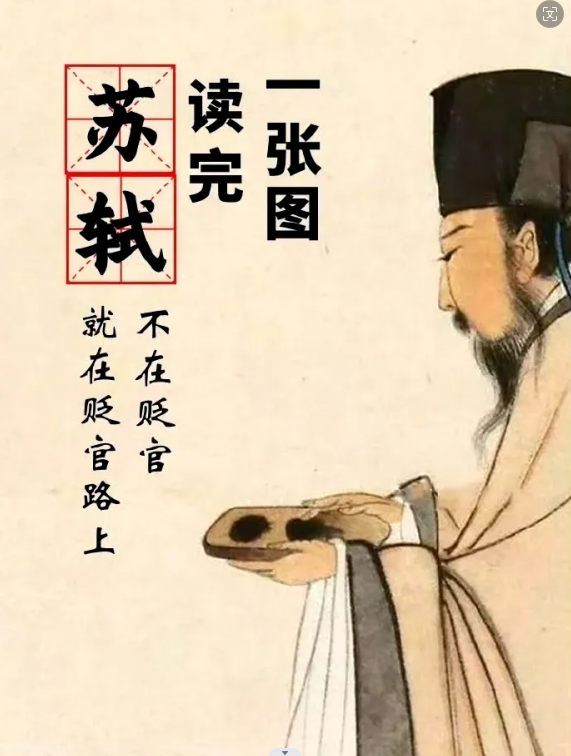 一张图
读完
苏轼
不在贬官
就在贬官路上